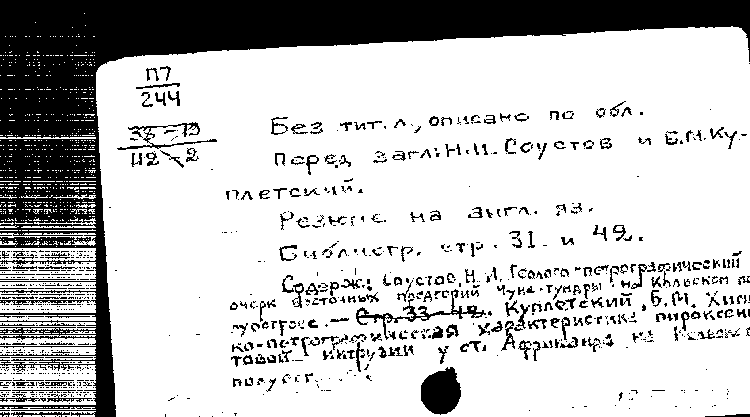 П7
244
33-79
42-2
Без тит. л., описано по обл.
Перед загл: Н.И. Соустов и Б.М. Ку-
плетский.
Резюме на англ. яз.
Библиогр. стр. 31 и 42.
Содерж.: Соустов, Н.И. Геолого-петрографический
очерк восточных предгорий Чуна-тундры на Кольском по-
луострове. – Стр. 33-42. Куплетский, Б.М. Хими-
ко-петрографическая характеристика пироксени-
товой интрузии у ст. Африканда на Кольском
полуост